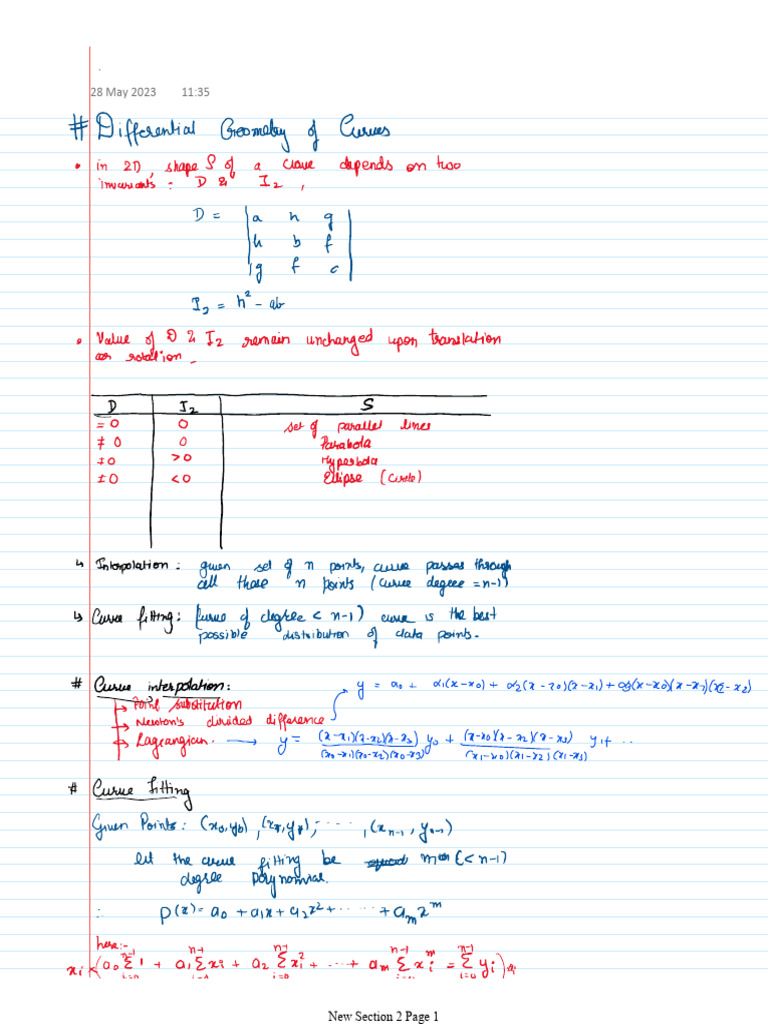 28 May 2023 11:35
# Differential Geometry of Curves
• in 2D, shape S of a curve depends on two
invariants : D & I₂ ,
D = | a h g |
| h b f |
| g f c |
I₂ = h² - ab
• Value of D & I₂ remain unchanged upon translation
or rotation.
D I₂ S
= 0 0 set of parallel lines
≠ 0 0 Parabola
≠ 0 > 0 Hyperbola
≠ 0 < 0 Ellipse (Circle)
↳ Interpolation : given set of n points, curve passes through
all those n points (curve degree = n-1)
↳ Curve fitting : (curve of degree < n-1) curve is the best
possible distribution of data points.
# Curve interpolation :
y = a₀ + α₁(x-x₀) + α₂(x-x₀)(x-x₁) + α₃(x-x₀)(x-x₁)(x-x₂)
→ Point substitution
→ Newton's divided difference
→ Lagrangian. → y = (x-x₁)(x-x₂)(x-x₃)/(x₀-x₁)(x₀-x₂)(x₀-x₃) y₀ + (x-x₀)(x-x₂)(x-x₃)/(x₁-x₀)(x₁-x₂)(x₁-x₃) y₁ + ...
# Curve Fitting
Given Points : (x₀, y₀), (x₁, y₁), ....., (xₙ₋₁, yₙ₋₁)
let the curve fitting be m (< n-1)
degree polynomial.
∴ P(x) = a₀ + a₁x + a₂x² + ...... + aₘxᵐ
here:-
xᵢ × (a₀ Σⁿ⁻¹ᵢ₌₀ 1 + a₁ Σⁿ⁻¹ xᵢ + a₂ Σⁿ⁻¹ᵢ₌₀ xᵢ² + ... + aₘ Σⁿ⁻¹ xᵢᵐ = Σⁿ⁻¹ᵢ₌₀ yᵢ)
New Section 2 Page 1